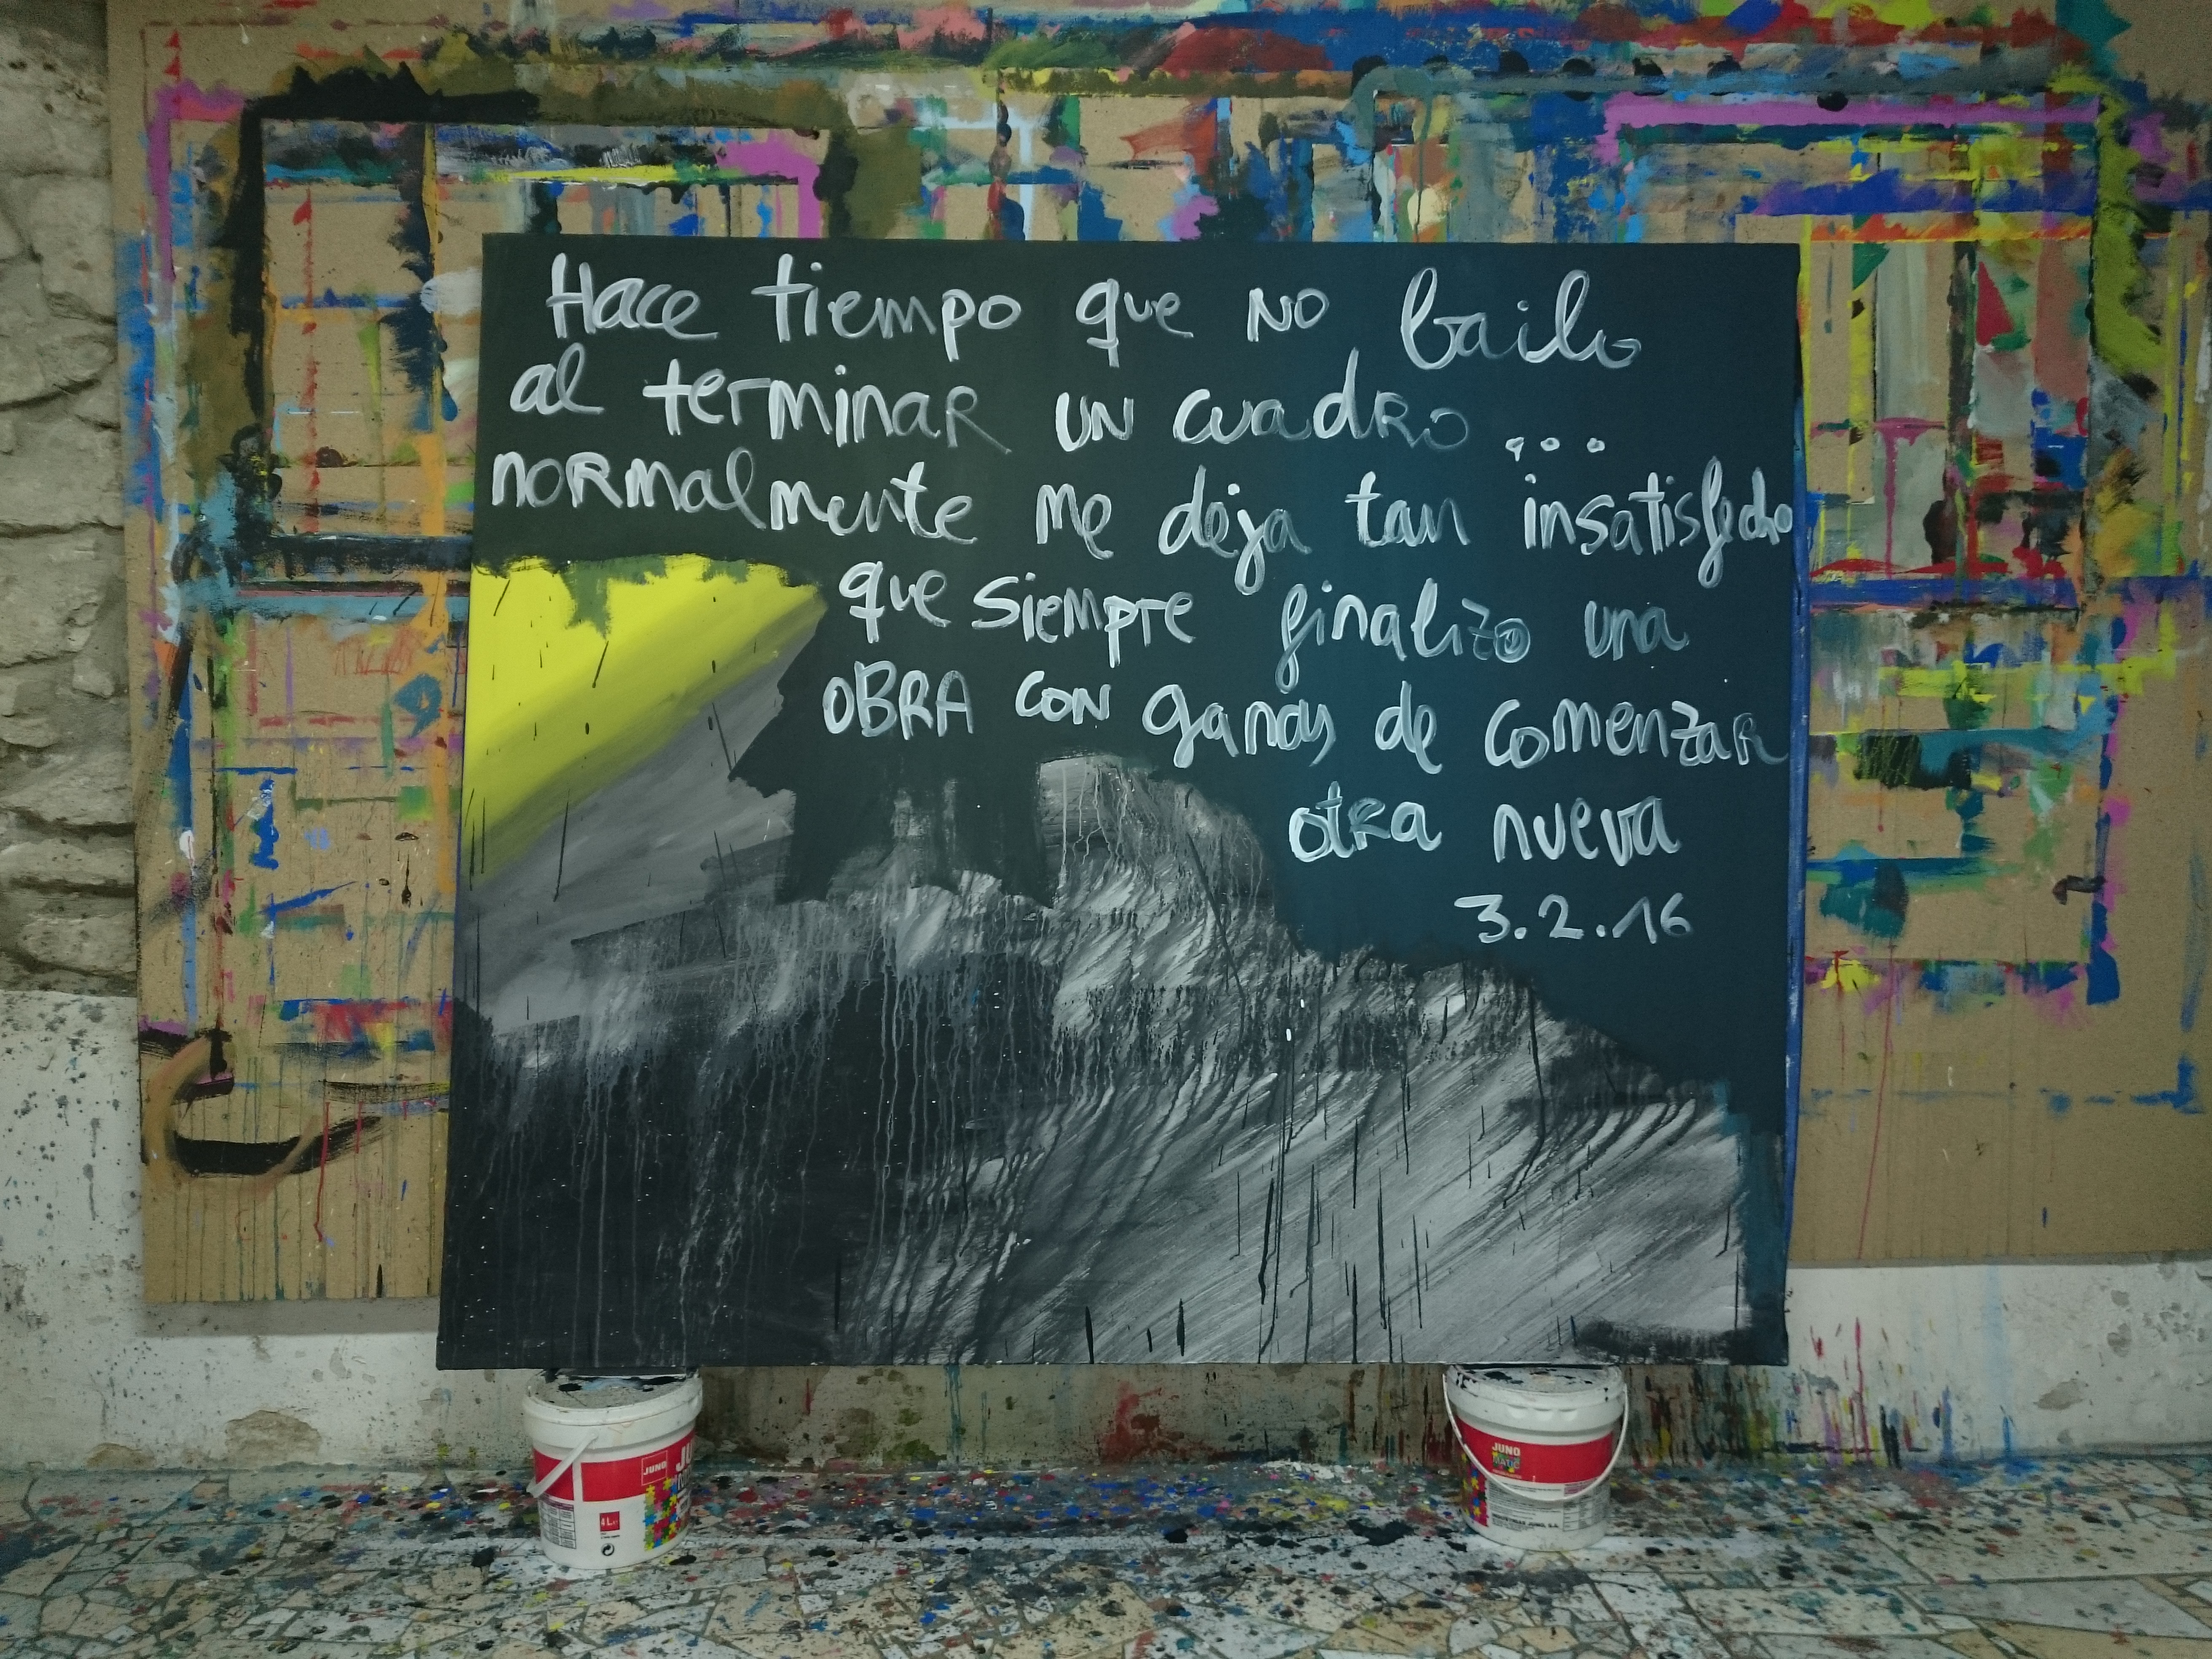 Hace tiempo que no bailo
al terminar un cuadro...
normalmente me deja tan insatisfecho
que siempre finalizo una
OBRA con ganas de comenzar
otra nueva
3.2.16
JUNO
4L
JUNO